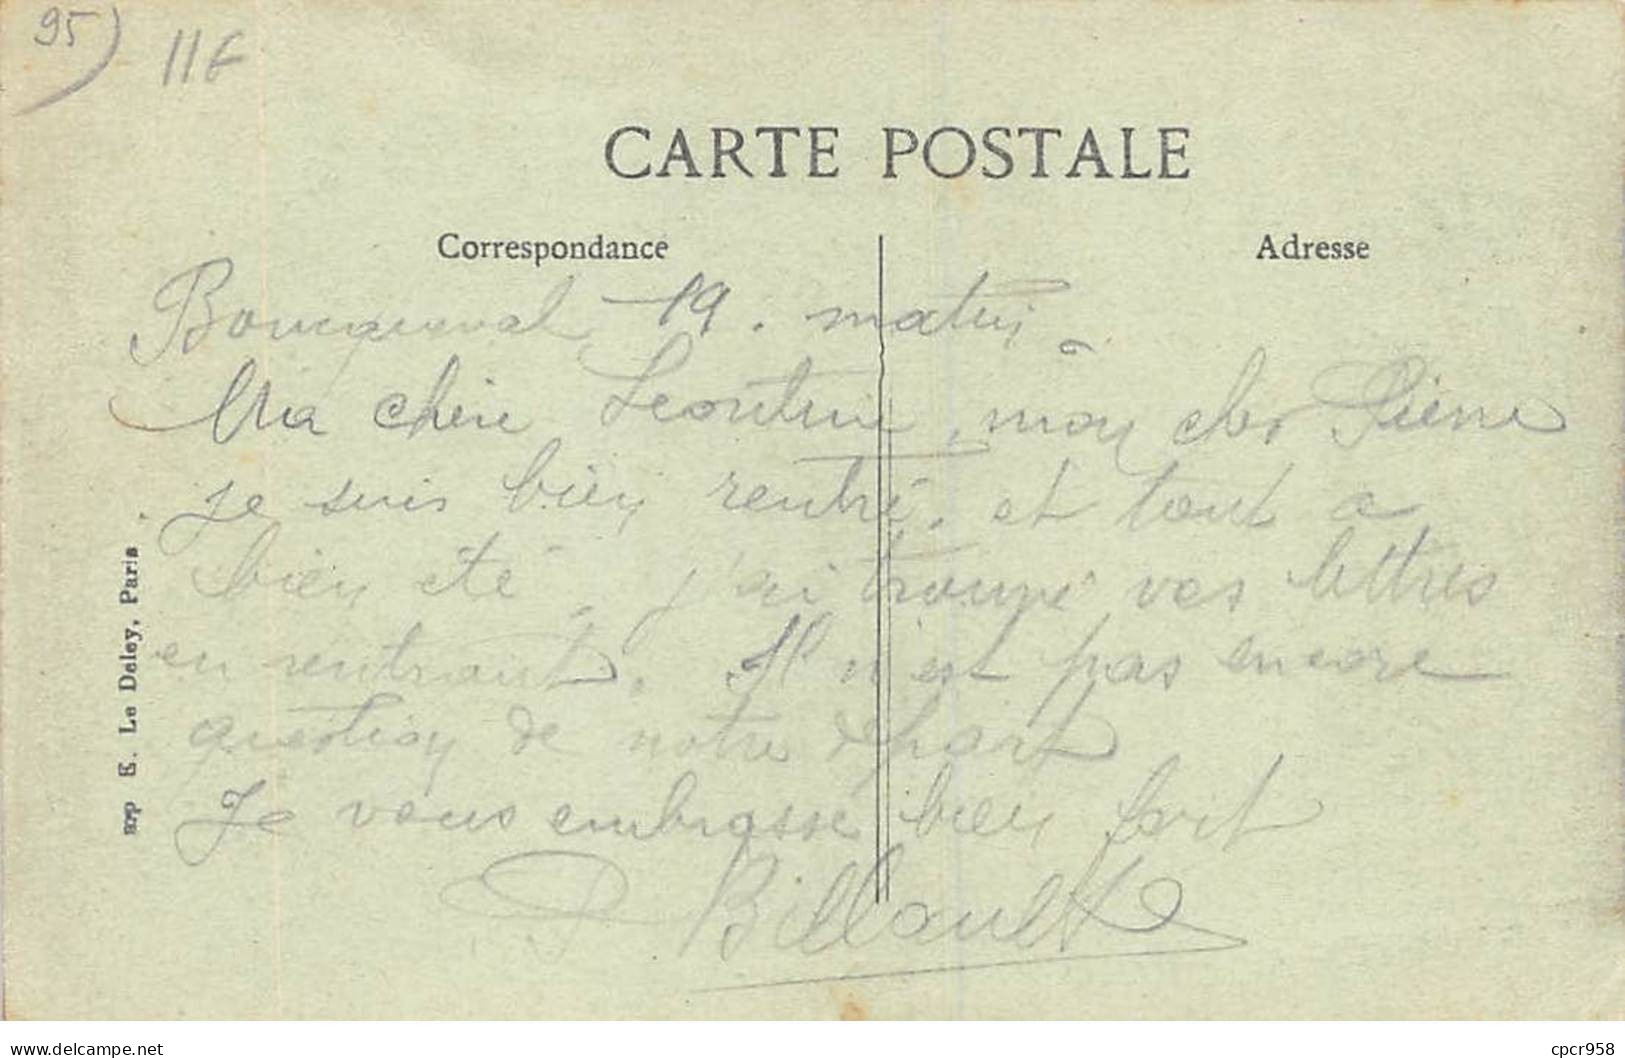 95) 11€
CARTE POSTALE
Correspondance
Adresse
Bouqueval 19. matin
Ma chère Leontine, mon cher Pierre
je suis bien rentré. et tout a
bien été. j'ai trouvé vos lettres
en rentrant. Il n'est pas encore
question de notre départ
Je vous embrasse bien fort
P Billault
E. Le Deley, Paris
www.delcampe.net
cpcr958